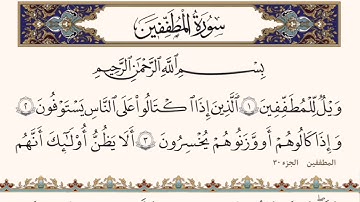 سُورَةُ الْمُطَفِّفِينَ
بِسْمِ اللَّهِ الرَّحْمَٰنِ الرَّحِيمِ
وَيْلٌ لِّلْمُطَفِّفِينَ ١ الَّذِينَ إِذَا اكْتَالُوا عَلَى النَّاسِ يَسْتَوْفُونَ ٢
وَإِذَا كَالُوهُمْ أَو وَّزَنُوهُمْ يُخْسِرُونَ ٣ أَلَا يَظُنُّ أُولَٰئِكَ أَنَّهُم
المطففين الجزء ٣٠